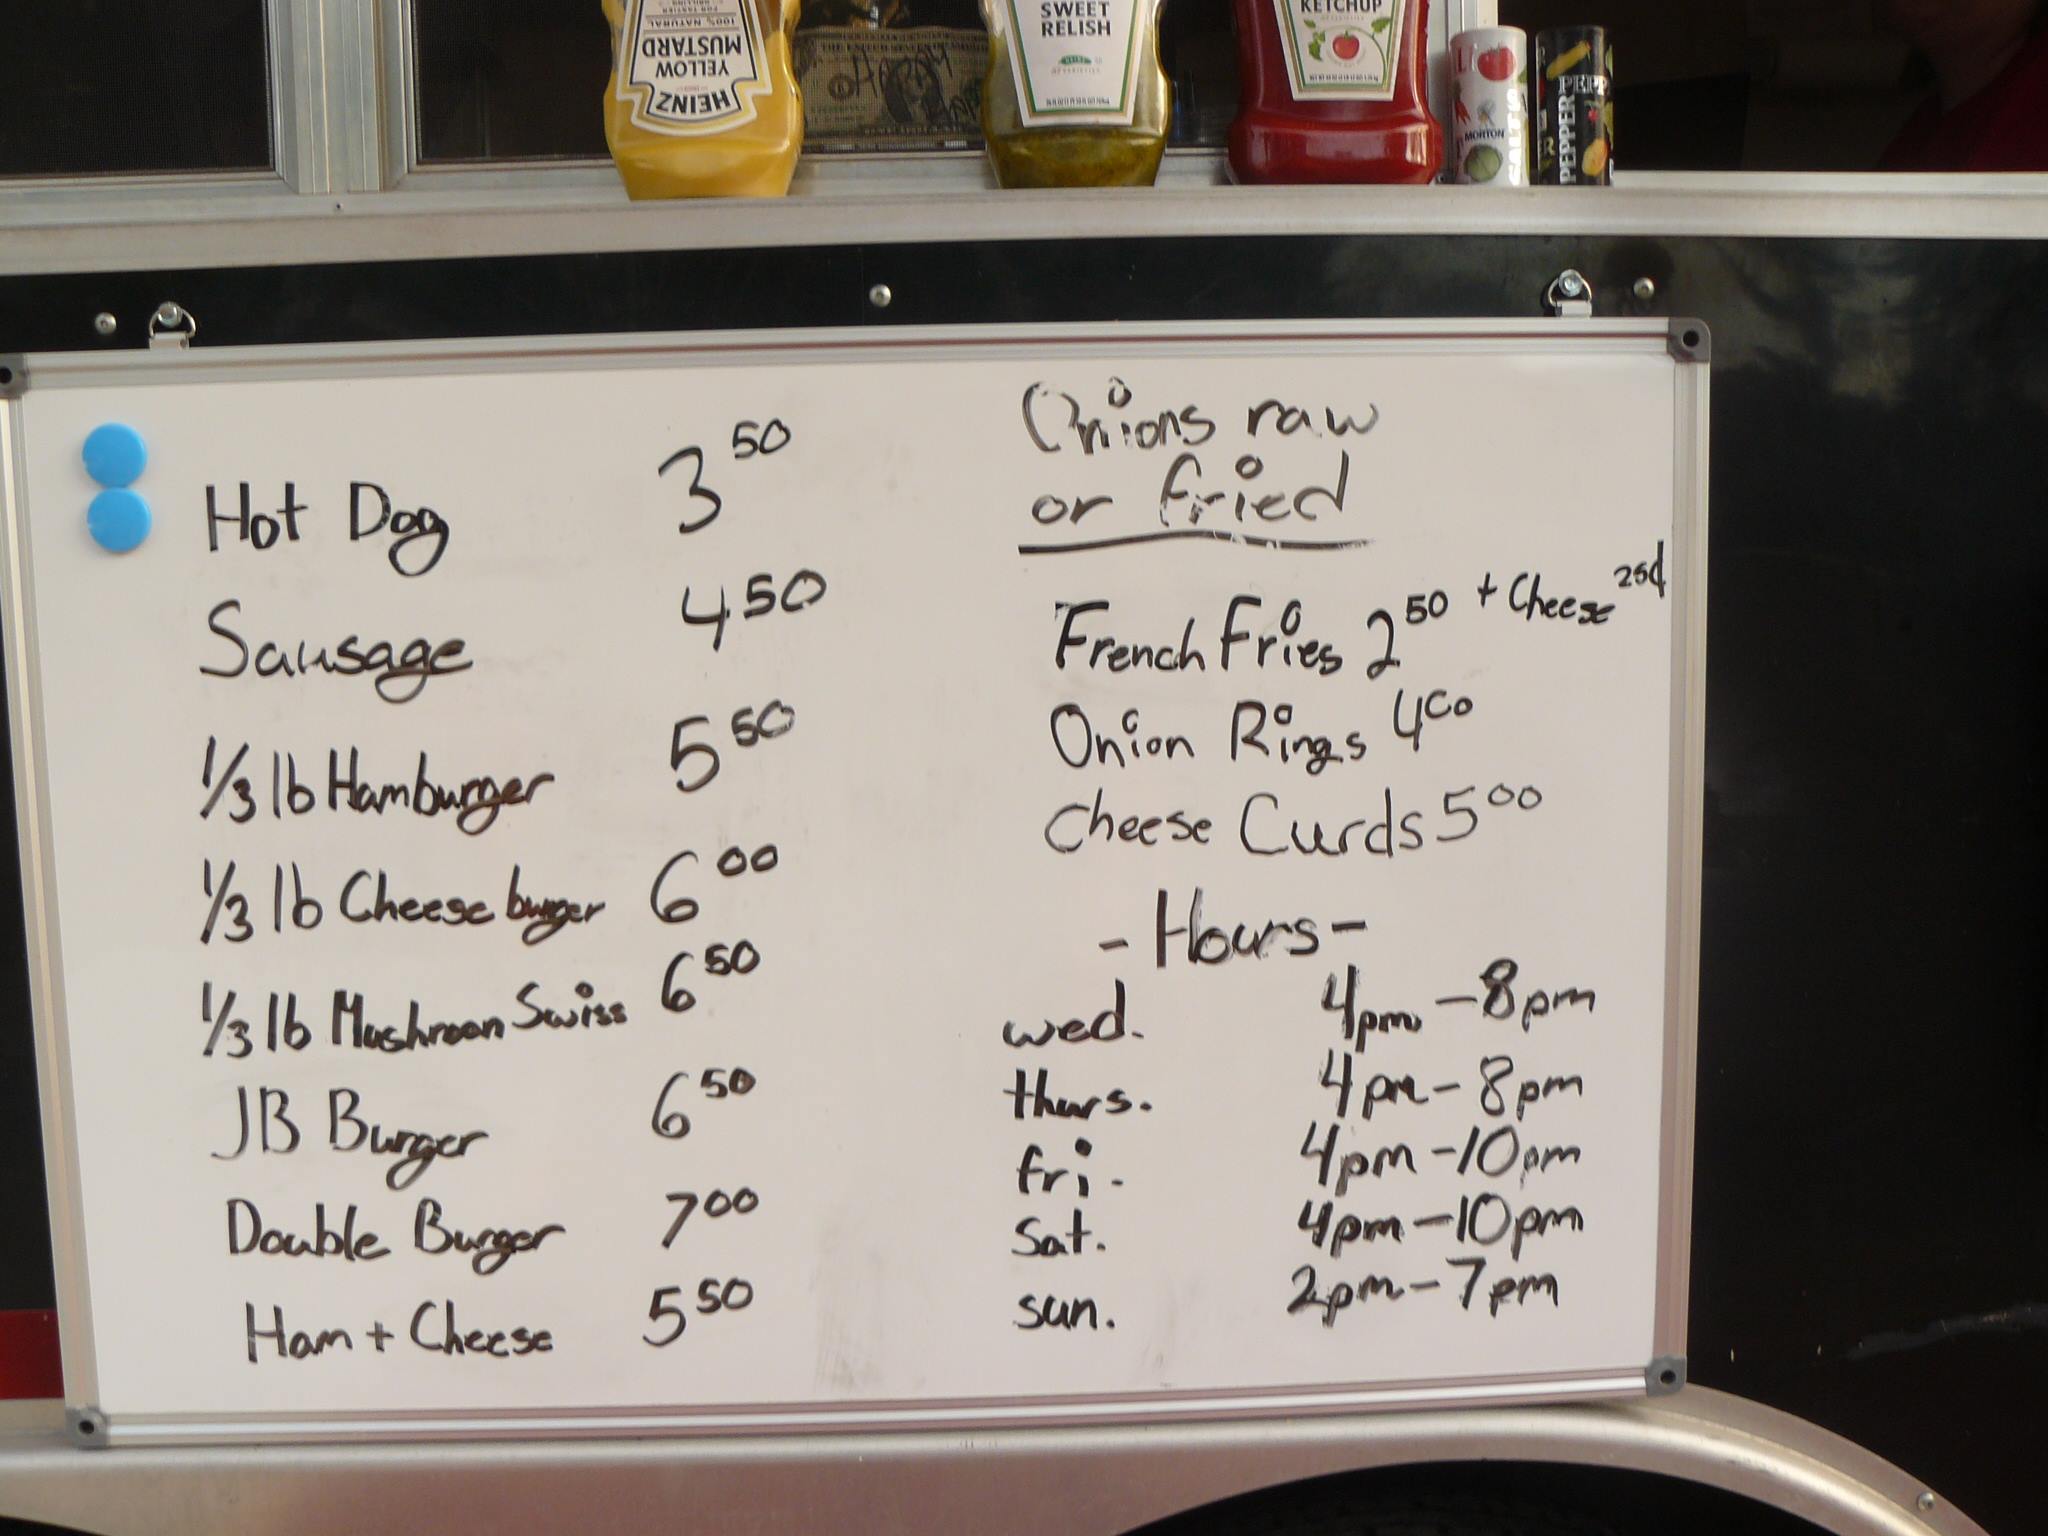 HEINZ
YELLOW
MUSTARD
100% NATURAL
SWEET
RELISH
KETCHUP
MORTON
SALT
PEPPER
PEPP
Hot Dog 3 50
Sausage 4 50
1/3 lb Hamburger 5 50
1/3 lb Cheeseburger 6 00
1/3 lb Mushroom Swiss 6 50
JB Burger 6 50
Double Burger 7 00
Ham + Cheese 5 50
Onions raw
or fried
French Fries 2 50 + Cheese 25¢
Onion Rings 4 00
Cheese Curds 5 00
- Hours -
wed. 4pm - 8pm
thurs. 4pm - 8pm
fri. 4pm - 10pm
Sat. 4pm - 10pm
sun. 2pm - 7pm